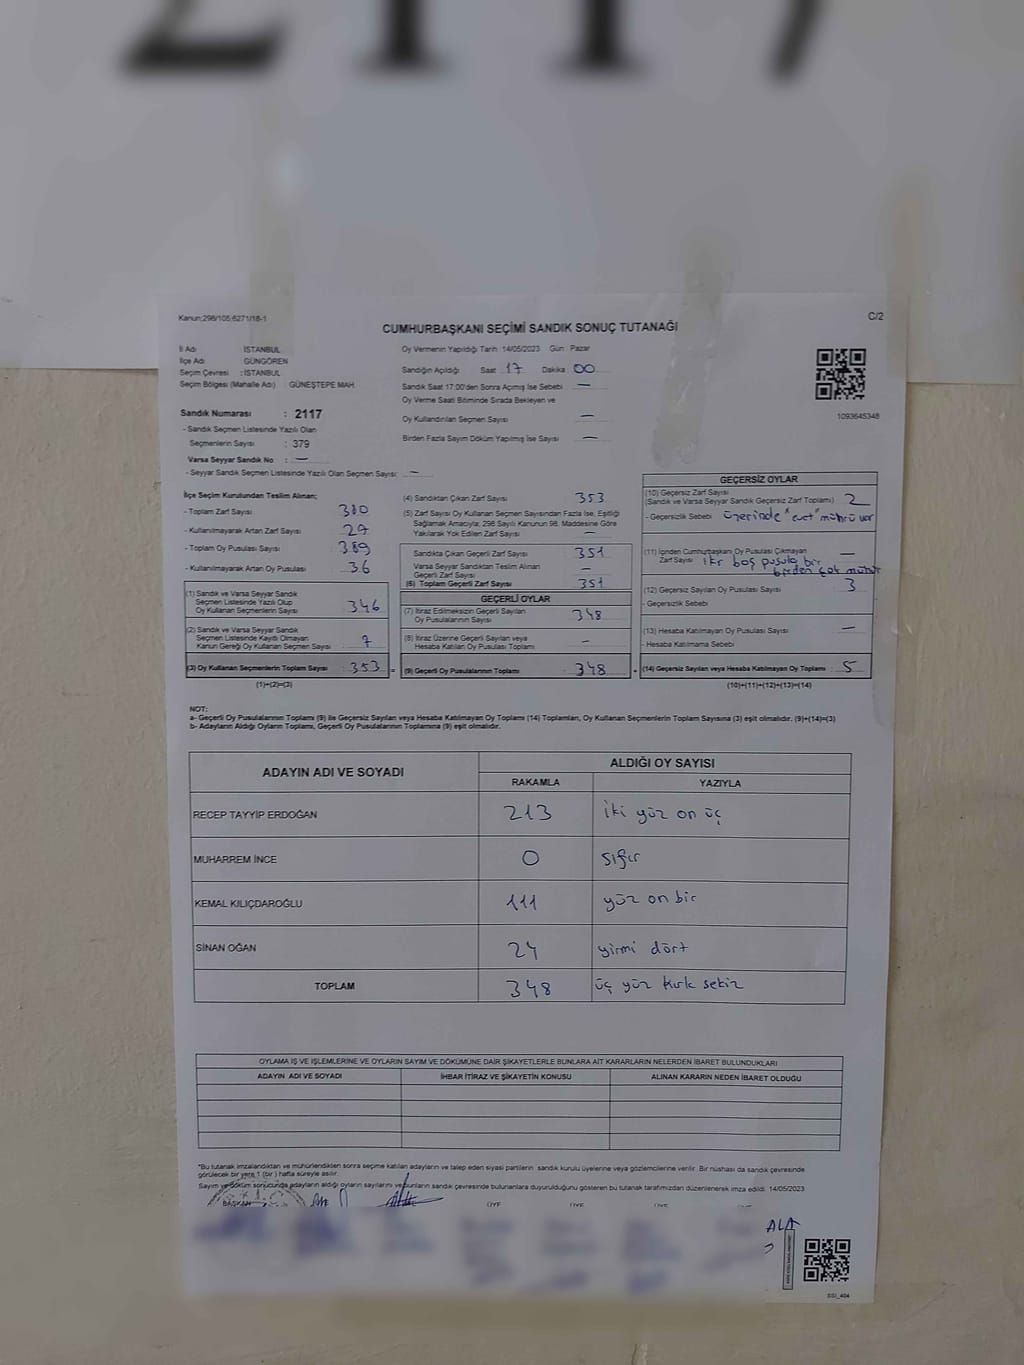 2117
Kanun;298/105;6271/18-1
C/2
CUMHURBAŞKANI SEÇİMİ SANDIK SONUÇ TUTANAĞI
İl Adı İSTANBUL
İlçe Adı GÜNGÖREN
Seçim Çevresi : İSTANBUL
Seçim Bölgesi (Mahalle Adı) : GÜNEŞTEPE MAH.
Sandık Numarası : 2117
- Sandık Seçmen Listesinde Yazılı Olan
Seçmenlerin Sayısı : 379
Varsa Seyyar Sandık No : —
- Seyyar Sandık Seçmen Listesinde Yazılı Olan Seçmen Sayısı: —
Oy Vermenin Yapıldığı Tarih :14/05/2023 Gün : Pazar
Sandığın Açıldığı Saat 17 Dakika 00
Sandık Saat 17:00'den Sonra Açılmış İse Sebebi —
Oy Verme Saati Bitiminde Sırada Bekleyen ve
Oy Kullandırılan Seçmen Sayısı —
Birden Fazla Sayım Döküm Yapılmış İse Sayısı —
1093645348
İlçe Seçim Kurulundan Teslim Alınan;
- Toplam Zarf Sayısı 380
- Kullanılmayarak Artan Zarf Sayısı 27
- Toplam Oy Pusulası Sayısı 389
- Kullanılmayarak Artan Oy Pusulası 36
(1) Sandık ve Varsa Seyyar Sandık
Seçmen Listesinde Yazılı Olup
Oy Kullanan Seçmenlerin Sayısı 346
(2) Sandık ve Varsa Seyyar Sandık
Seçmen Listesinde Kayıtlı Olmayan
Kanun Gereği Oy Kullanan Seçmen Sayısı 7
(3) Oy Kullanan Seçmenlerin Toplam Sayısı : 353 =
(1)+(2)=(3)
(4) Sandıktan Çıkan Zarf Sayısı 353
(5) Zarf Sayısı Oy Kullanan Seçmen Sayısından Fazla İse, Eşitliği
Sağlamak Amacıyla; 298 Sayılı Kanunun 98. Maddesine Göre
Yakılarak Yok Edilen Zarf Sayısı —
Sandıkta Çıkan Geçerli Zarf Sayısı 351
Varsa Seyyar Sandıktan Teslim Alınan
Geçerli Zarf Sayısı —
(6) Toplam Geçerli Zarf Sayısı 351
GEÇERLİ OYLAR
(7) İtiraz Edilmeksizin Geçerli Sayılan
Oy Pusulalarının Sayısı 348
(8) İtiraz Üzerine Geçerli Sayılan veya
Hesaba Katılan Oy Pusulası Toplamı -
(9) Geçerli Oy Pusulalarının Toplamı 348 +
GEÇERSİZ OYLAR
(10) Geçersiz Zarf Sayısı
(Sandık ve Varsa Seyyar Sandık Geçersiz Zarf Toplamı) 2
- Geçersizlik Sebebi üzerinde "evet" mührü var
(11) İçinden Cumhurbaşkanı Oy Pusulası Çıkmayan
Zarf Sayısı —
iki boş pusula bir
birden çok mühür
(12) Geçersiz Sayılan Oy Pusulası Sayısı 3
- Geçersizlik Sebebi
(13) Hesaba Katılmayan Oy Pusulası Sayısı —
- Hesaba Katılmama Sebebi
(14) Geçersiz Sayılan veya Hesaba Katılmayan Oy Toplamı : 5
(10)+(11)+(12)+(13)=(14)
NOT:
a- Geçerli Oy Pusulalarının Toplamı (9) ile Geçersiz Sayılan veya Hesaba Katılmayan Oy Toplamı (14) Toplamları, Oy Kullanan Seçmenlerin Toplam Sayısına (3) eşit olmalıdır. (9)+(14)=(3)
b- Adayların Aldığı Oyların Toplamı, Geçerli Oy Pusulalarının Toplamına (9) eşit olmalıdır.
ADAYIN ADI VE SOYADI ALDIĞI OY SAYISI
RAKAMLA YAZIYLA
RECEP TAYYİP ERDOĞAN 213 iki yüz on üç
MUHARREM İNCE 0 sıfır
KEMAL KILIÇDAROĞLU 111 yüz on bir
SİNAN OĞAN 24 yirmi dört
TOPLAM 348 üç yüz kırk sekiz
OYLAMA İŞ VE İŞLEMLERİNE VE OYLARIN SAYIM VE DÖKÜMÜNE DAİR ŞİKAYETLERLE BUNLARA AİT KARARLARIN NELERDEN İBARET BULUNDUKLARI
ADAYIN ADI VE SOYADI İHBAR İTİRAZ VE ŞİKAYETİN KONUSU ALINAN KARARIN NEDEN İBARET OLDUĞU
*Bu tutanak imzalandıktan ve mühürlendikten sonra seçime katılan adayların ve talep eden siyasi partilerin sandık kurulu üyelerine veya gözlemcilerine verilir. Bir nüshası da sandık çevresinde
görülecek bir yere 1 (bir ) hafta süreyle asılır.
Sayım ve döküm sonucunda adayların aldığı oyların sayılarını ve bunların sandık çevresinde bulunanlara duyurulduğunu gösteren bu tutanak tarafımızdan düzenlenerek imza edildi. 14/05/2023
BAŞKAN ÜYE ÜYE ÜYE
ALA
SSI_404